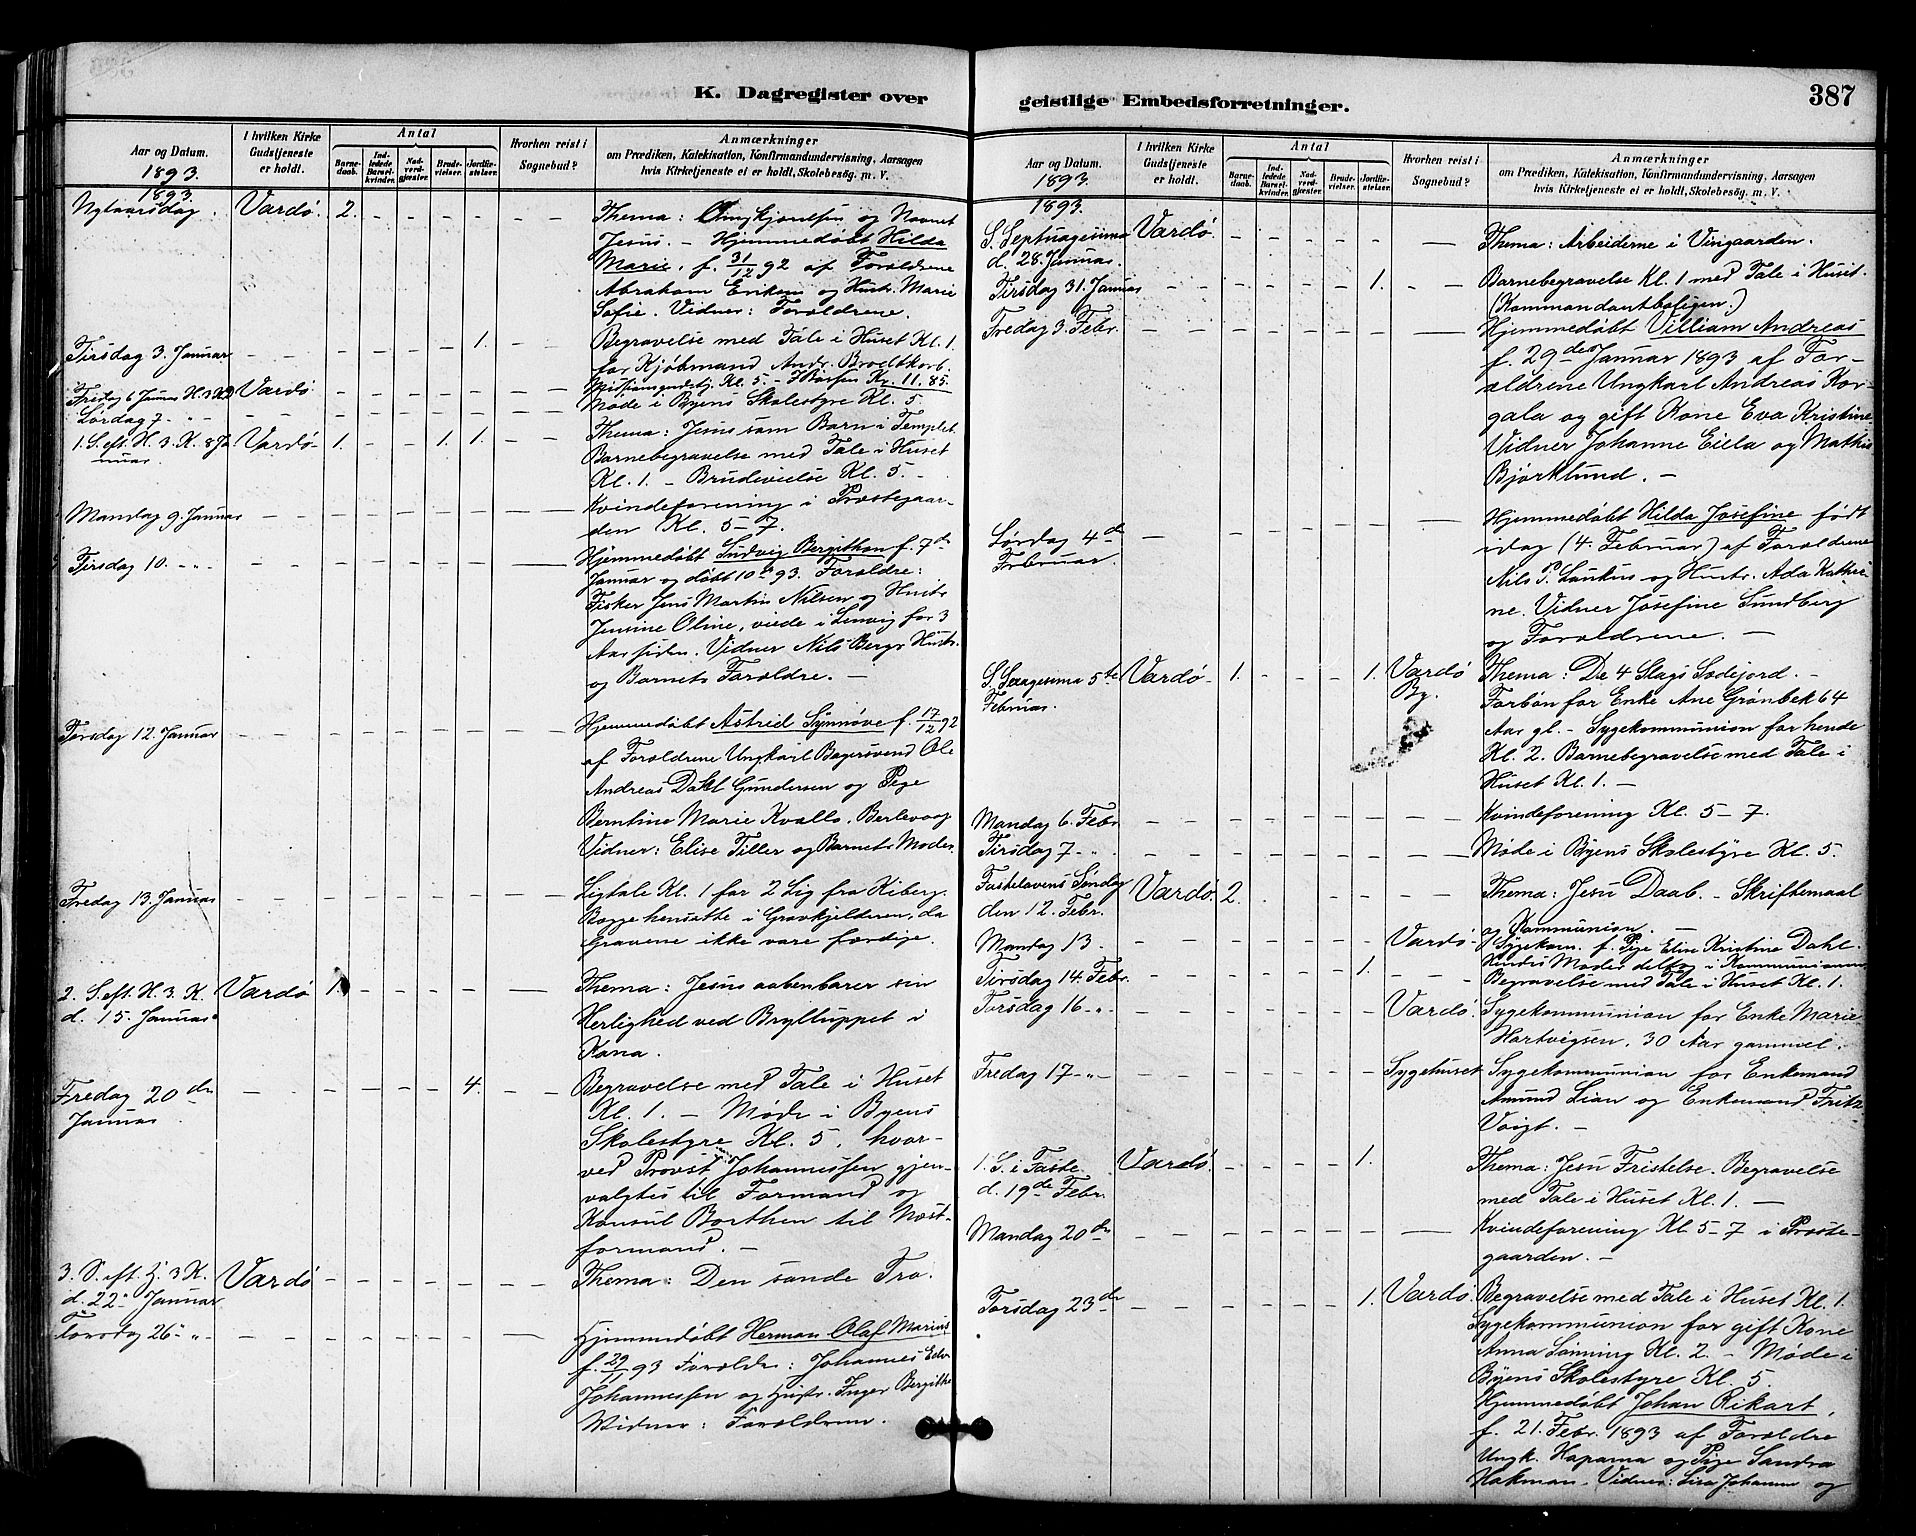 K. Dagregister over
Aar og Datum.
1893.
I hvilken Kirke Gudstjeneste er holdt.
Antal
Barnedaab.
Indledede Barselkvinder.
Nadverdgjester.
Brudevielser.
Jordfæstelser.
Hvorhen reist i Sognebud?
Anmærkninger
om Prædiken, Katekisation, Konfirmandundervisning, Aarsagen
hvis Kirketjeneste ei er holdt, Skolebesøg. m. V.
1893.
Nytaarsdag. Vardø. 2. Thema: Omskjærelsen og Navnet
Jesus. – Hjemmedøbt Hilda
Marie, f. 31/12 92 af Forældrene
Abraham Eriksen og Hustr. Marie
Sofie. Vidner: Forældrene.
Tirsdag 3. Januar 1. Begravelse med Tale i Huset Kl. 1.
for Kjøbmand Andr. Brodtkorb.
Fredag 6 Januar H. 3 K. D. Vardø. Missionsgudstj. Kl. 5. – I Bøssen Kr. 11.85.
Lørdag 7 – „ – Møde i Byens Skolestyre Kl. 5.
1. S. eft. H. 3. K. 8 Ja- Vardø 1. 1. 1. Thema: Jesus som Barn i Templet.
nuar. Barnebegravelse med Tale i Huset
Kl. 1. – Brudevielse Kl. 5. –
Mandag 9. Januar Kvindeforening i Præstegaar-
den Kl. 5–7.
Tirsdag 10. – „ – Hjemmedøbt Ludvig Bergithon f. 7de
Januar og døbt 10de 93. Forældre:
Fisker Jens Martin Nilsen og Hustr.
Jensine Oline, viede i Lenvig for 3
Aar siden. Vidner Nils Bergs Hustr.
og Barnets Forældre. –
Torsdag 12. Januar Hjemmedøbt Astrid Synnøve f. 17/12 92
af Forældrene Ungkarl Bagersvend Ole
Andreas Dahl Gundersen og Pige
Berntine Marie Kvallo, Berlevaag
Vidner: Elise Tiller og Barnets Moder.
Fredag 13. Januar Ligtale Kl. 1 for 2 Lig fra Kiberg.
Begge hensatte i Gravkjelderen, da
Gravene ikke vare færdige.
2. S. eft. H. 3. K. Vardø 1. Thema: Jesus aabenbarer sin
d. 15. Januar. Herlighed ved Brylluppet i
Kana.
Fredag 20de 4. Begravelse med Tale i Huset
Januar Kl. 1. – Møde i Byens
Skolestyre Kl. 5, hvor-
ved Provst Johannessen gjen-
valgtes til Formand og
Konsul Borthen til Næst-
formand. –
3. S. eft. H. 3 K. Vardø Thema: Den sande Tro.
d. 22. Januar
Torsdag 26 „ Hjemmedøbt Herman Olaf Marius
f. 29/11 93 Forældre: Johannes Edv.
Johannessen og Hustr. Inger Bergithe
Vidner: Forældrene.
geistlige Embedsforretninger.
387
Aar og Datum.
1893.
I hvilken Kirke Gudstjeneste er holdt.
Antal
Barnedaab.
Indledede Barselkvinder.
Nadverdgjester.
Brudevielser.
Jordfæstelser.
Hvorhen reist i Sognebud?
Anmærkninger
om Prædiken, Katekisation, Konfirmandundervisning, Aarsagen
hvis Kirketjeneste ei er holdt, Skolebesøg. m. V.
1893.
S. Septuagesima Vardø. Thema: Arbeiderne i Vingaarden.
d. 28. Januar.
Tirsdag 31. Januar 1. Barnebegravelse Kl. 1 med Tale i Huset.
(Kommandantboligen.)
Fredag 3. Febr. Hjemmedøbt Villiam Andreas
f. 29de Januar 1893 af For-
ældrene Ungkarl Andreas Kor-
gala og gift Kone Eva Kristine
Vidner Johanne Eiela og Mathis
Bjørklund. –
Lørdag 4de Hjemmedøbt Hilda Josefine født
Februar. idag (4. Februar) af Forældrene
Nils P. Laukus og Hustr. Ada Kathri-
ne. Vidner Josefine Sundberg
og Forældrene. –
S. Sexagesima 5te Vardø 1. 1. Vardø Thema: De 4 Slags Sædejord. –
Februar. By. Forbøn for Enke Ane Grønbek 64
Aar gl. – Sygekommunion for hende
Kl. 2. Barnebegravelse med Tale i
Huset Kl. 1. –
Mandag 6. Febr. Kvindeforening Kl. 5–7.
Tirsdag 7 – „ Møde i Byens Skolestyre Kl. 5.
Fastelavens Søndag Vardø. 2. Thema: Jesu Daab. – Skriftemaal
den 12. Febr. og Kommunion. –
Mandag 13. Vardø Sygekom. f. Pige Eline Kristine Dahl.
Hendes Moder deltog i Kommunionen
Tirsdag 14. Febr. 1. Begravelse med Tale i Huset Kl. 1.
Torsdag 16 – „ Vardø. Sygekommunion for Enke Marie
Hartvigsen, 30 Aar gammel.
Fredag 17 – „ – Sygehuset Sygekommunion for Enkemand
Amund Lian og Enkemand Fritz
Voigt. –
1. S. i Faste Vardø. 1. Thema: Jesu Fristelse. Begravelse
d. 19de Febr. med Tale i Huset Kl. 1. –
Mandag 20de Kvindeforening Kl. 5–7 i Præste-
gaarden. –
Torsdag 23de 1. Vardø. Begravelse med Tale i Huset Kl. 1.
Sygekommunion for gift Kone
Anna Lønning Kl. 2. – Møde i
Byens Skolestyre Kl. 5.
Hjemmedøbt Johan Rikart,
f. 21. Febr. 1893 af Forældre
Ungk. Haparna og Pige Sandra
Hakman. Vidner: Lisa Johanne og